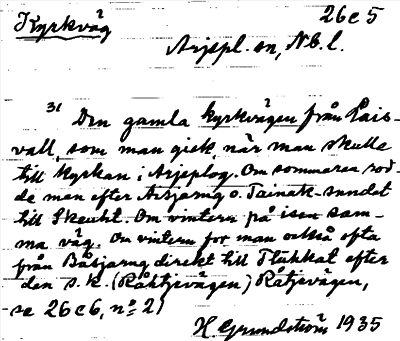 Kyrkväg
26c5
Arjepl. sn, N.b.l.
31 Den gamla kyrkvägen från Lais-
vall, som man gick, när man skulle
till kyrkan i Arjeplog. Om sommaren rod-
de man efter Arsjarng o. Tainak-sundet
till Skeuht. Om vintern på isen sam-
ma väg. Om vintern for man också ofta
från Båsjarng direkt till efter
den s.k. (Råktjevägen) Råtjevägen,
se 26c6, no 21
H Grundström 1935